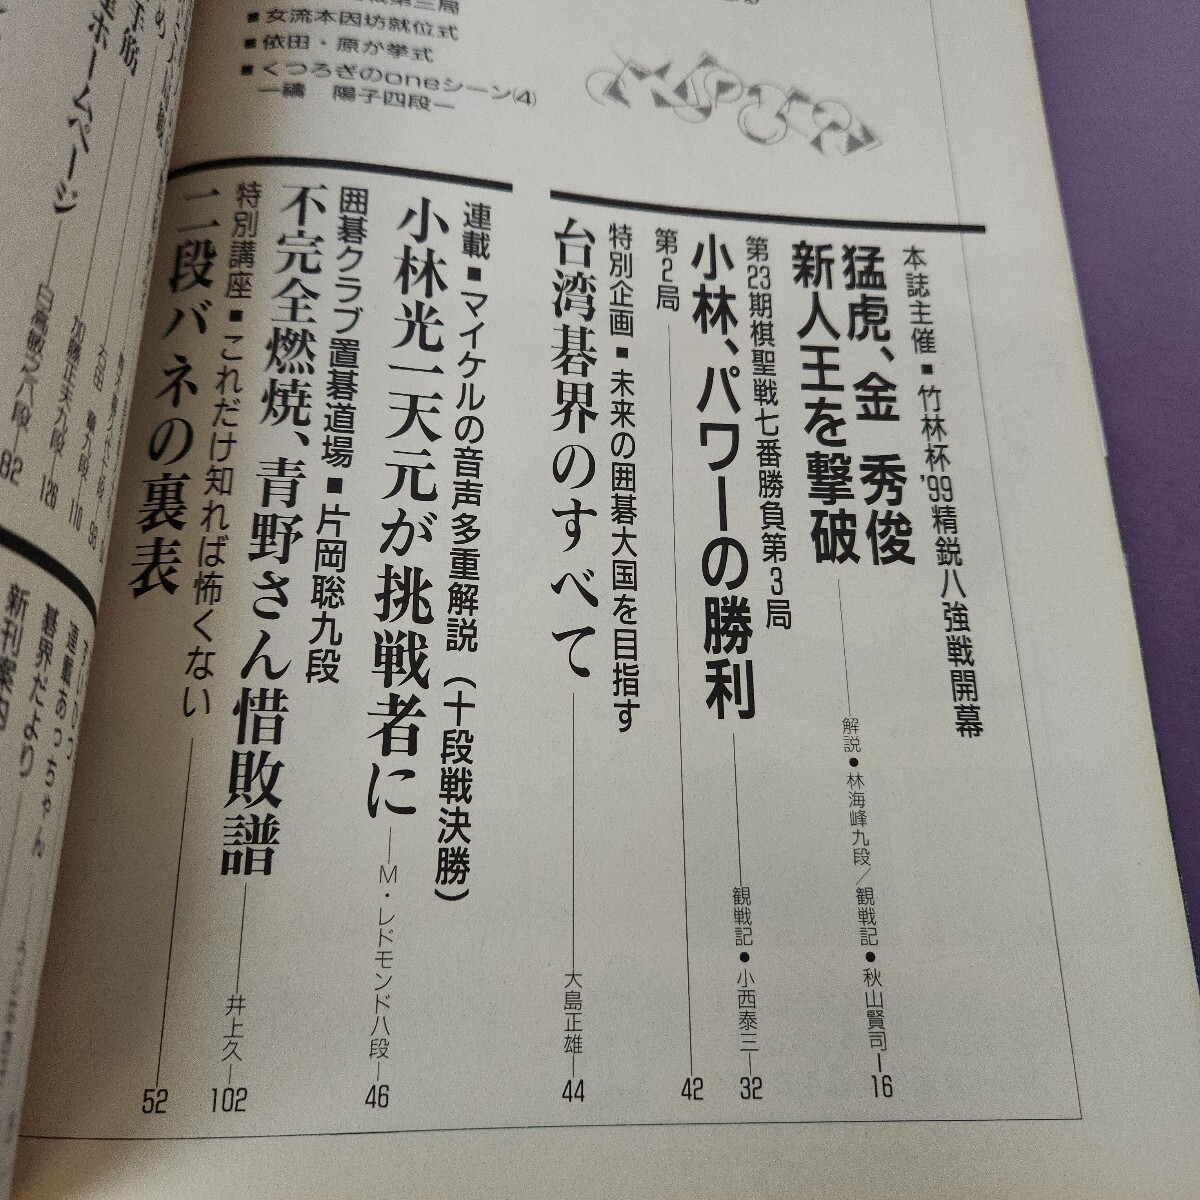 ■女流本因坊就位式
■依田・原が挙式
■くつろぎのoneシーン(4)
―禱　陽子四段―
本誌主催■竹林杯'99精鋭八強戦開幕
猛虎、金　秀俊
新人王を撃破
解説●林海峰九段／観戦記●秋山賢司
16
第23期棋聖戦七番勝負第3局
小林、パワーの勝利
観戦記●小西泰三
32
第2局
42
特別企画■未来の囲碁大国を目指す
台湾碁界のすべて
大島正雄
44
連載■マイケルの音声多重解説（十段戦決勝）
小林光一天元が挑戦者に
M・レドモンド八段
46
囲碁クラブ置碁道場■片岡聡九段
不完全燃焼、青野さん惜敗譜
井上久
102
特別講座■これだけ知れば怖くない
二段バネの裏表
52
加藤正夫九段
126
110
ホームページ
82
連載あっちゃん
碁界だより
新刊案内